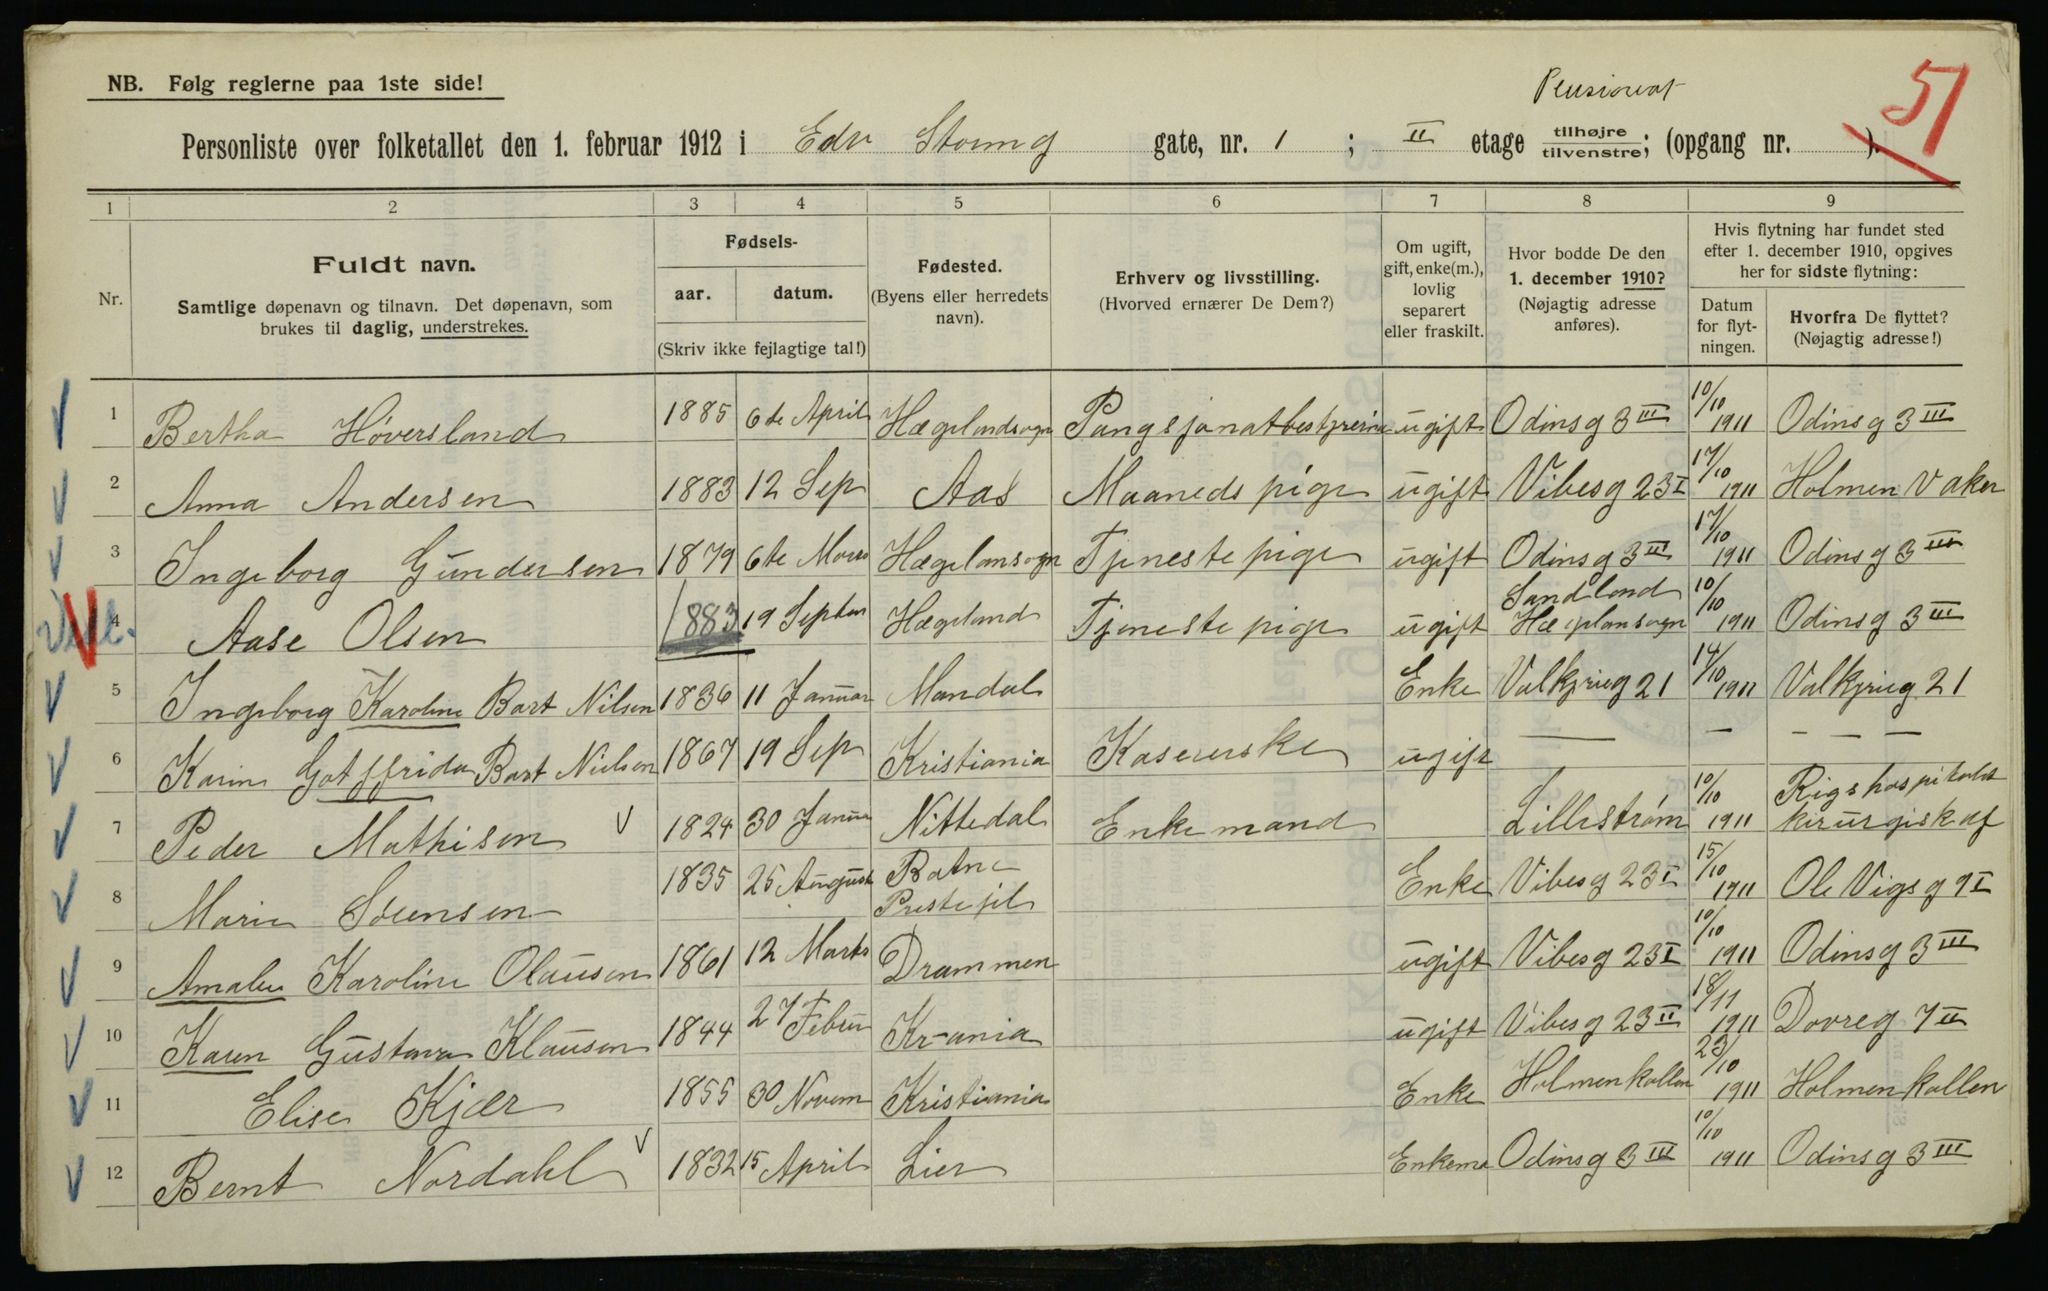 NB. Følg reglerne paa 1ste side!
Pensionat
51
Personliste over folketallet den 1. februar 1912 i Edv Storms g gate, nr. 1 ; II etage tilhøjre/tilvenstre; (opgang nr. ).
1 2 3 4 5 6 7 8 9
Nr.
Fuldt navn.
Samtlige døpenavn og tilnavn. Det døpenavn, som
brukes til daglig, understrekes.
Fødsels-
aar. datum.
(Skriv ikke fejlagtige tal!)
Fødested.
(Byens eller herredets
navn).
Erhverv og livsstilling.
(Hvorved ernærer De Dem?)
Om ugift,
gift, enke(m.),
lovlig
separert
eller fraskilt.
Hvor bodde De den
1. december 1910?
(Nøjagtig adresse
anføres).
Hvis flytning har fundet sted
efter 1. december 1910, opgives
her for sidste flytning:
Datum
for flyt-
ningen.
Hvorfra De flyttet?
(Nøjagtig adresse!)
1 Bertha Høversland 1885 6te April Hægelandsogn Pangsjonatbestyrerine ugift Odinsg 3 III 10/10 1911 Odinsg 3 III
2 Anna Andersen 1883 12 Sep Aas Maanedspige ugift Vibesg 23 I 17/10 1911 Holmen Vaker
3 Ingeborg Gundersen 1879 6te Mars Hægelansogn Tjenestepige ugift Odinsg 3 III 17/10 1911 Odinsg 3 III
4 Aase Olsen 1883 19 Septem Hægeland Tjenestepige ugift Sandland Hægelansogn 10/10 1911 Odinsg 3 III
5 Ingeborg Karoline Bart Nilsen 1836 11 Januar Mandal Enke Valkjrieg 21 14/10 1911 Valkjrieg 21
6 Karin Gotffrida Bart Nielsen 1867 19 Sep Kristiania Kasererske ugift — — — — —
7 Peder Mathisen 1824 30 Janua Nittedal Enkemand Lillestrøm 10/10 1911 Rigshospitalet kirurgisk af
8 Marie Sørensen 1835 25 August Ratne Prestejil Enke Vibesg 23 I 15/10 1911 Ole Vigsg 9 I
9 Amalie Karoline Olausen 1861 12 Marts Drammen ugift Vibesg 23 I 10/10 1911 Odinsg 3 III
10 Karen Gustava Klausen 1844 27 Febru Kr-ania ugift Vibesg 23 II 18/11 1911 Dovreg 7 II
11 Elise Kjær 1855 30 Novem Kristiania Enke Holmenkollen 23/10 1911 Holmenkollen
12 Bernt Nordahl 1832 15 April Lier Enkema Odinsg 3 III 10/10 1911 Odinsg 3 III